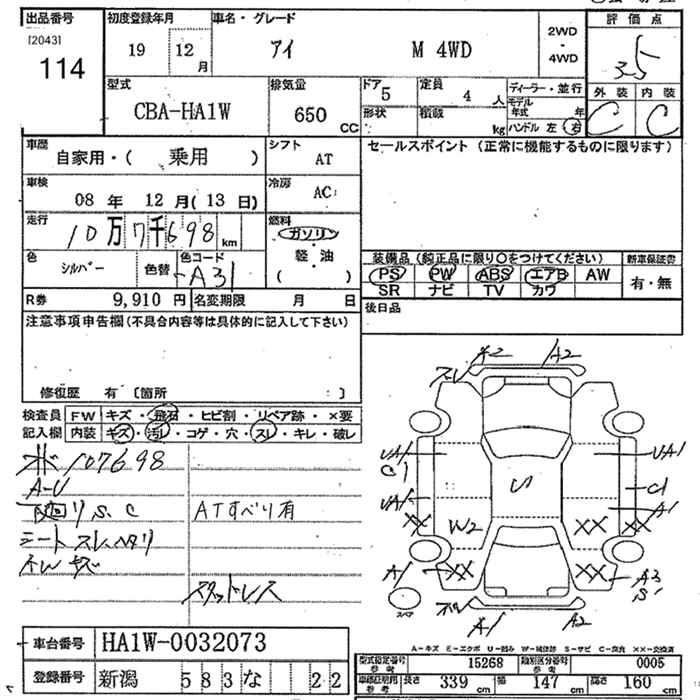 出品番号
[2043]
114
初度登録年月
19
12
月
車名・グレード
アイ
M 4WD
2WD
・
4WD
評価点
3.5
型式
CBA-HA1W
排気量
650
CC
ドア
5
定員
4
人
形状
積載
kg
ディーラー・並行
モデル年式
年
ハンドル 左 右
外装 内装
C C
車歴
自家用・( 乗用 )
シフト
AT
車検
08 年 12 月(13 日)
冷房
AC
走行
10万7千698
km
燃料
ガソリン
軽・油
( )
色
シルバー
色替
色コード
A31
R券
9,910 円
名変期限
月 日
セールスポイント (正常に機能するものに限ります)
装備品 (純正品に限り○をつけてください)
PS PW ABS エアB AW
SR ナビ TV カワ
新車保証書
有・無
後日品
注意事項申告欄(不具合内容等は具体的に記入して下さい)
修復歴 有 〔箇所 :〕
検査員
記入欄
FW キズ・飛石・ヒビ割・リペア跡・×要
内装 キズ・汚レ・コゲ・穴・スレ・キレ・破レ
107698
A-U
下廻り S、C
シート スレ、ヘタリ
ATすべり有
スタッドレス
A2
A2
UA1
C1
UA1
XX
W2
U
UA1
C1
A1
XX
XX
A1
XX
XX
A3
S1
スペア
A1
A2
A-キズ E-エクボ U-凹み W-補修跡 S-サビ C-腐食 XX-交換済
車台番号
HA1W-0032073
登録番号
新潟 583 な 22
型式指定番号
参考
15268
類別区分番号
参考
0005
車庫証明用
参考
長さ 339 cm
幅 147 cm
高さ 160 cm